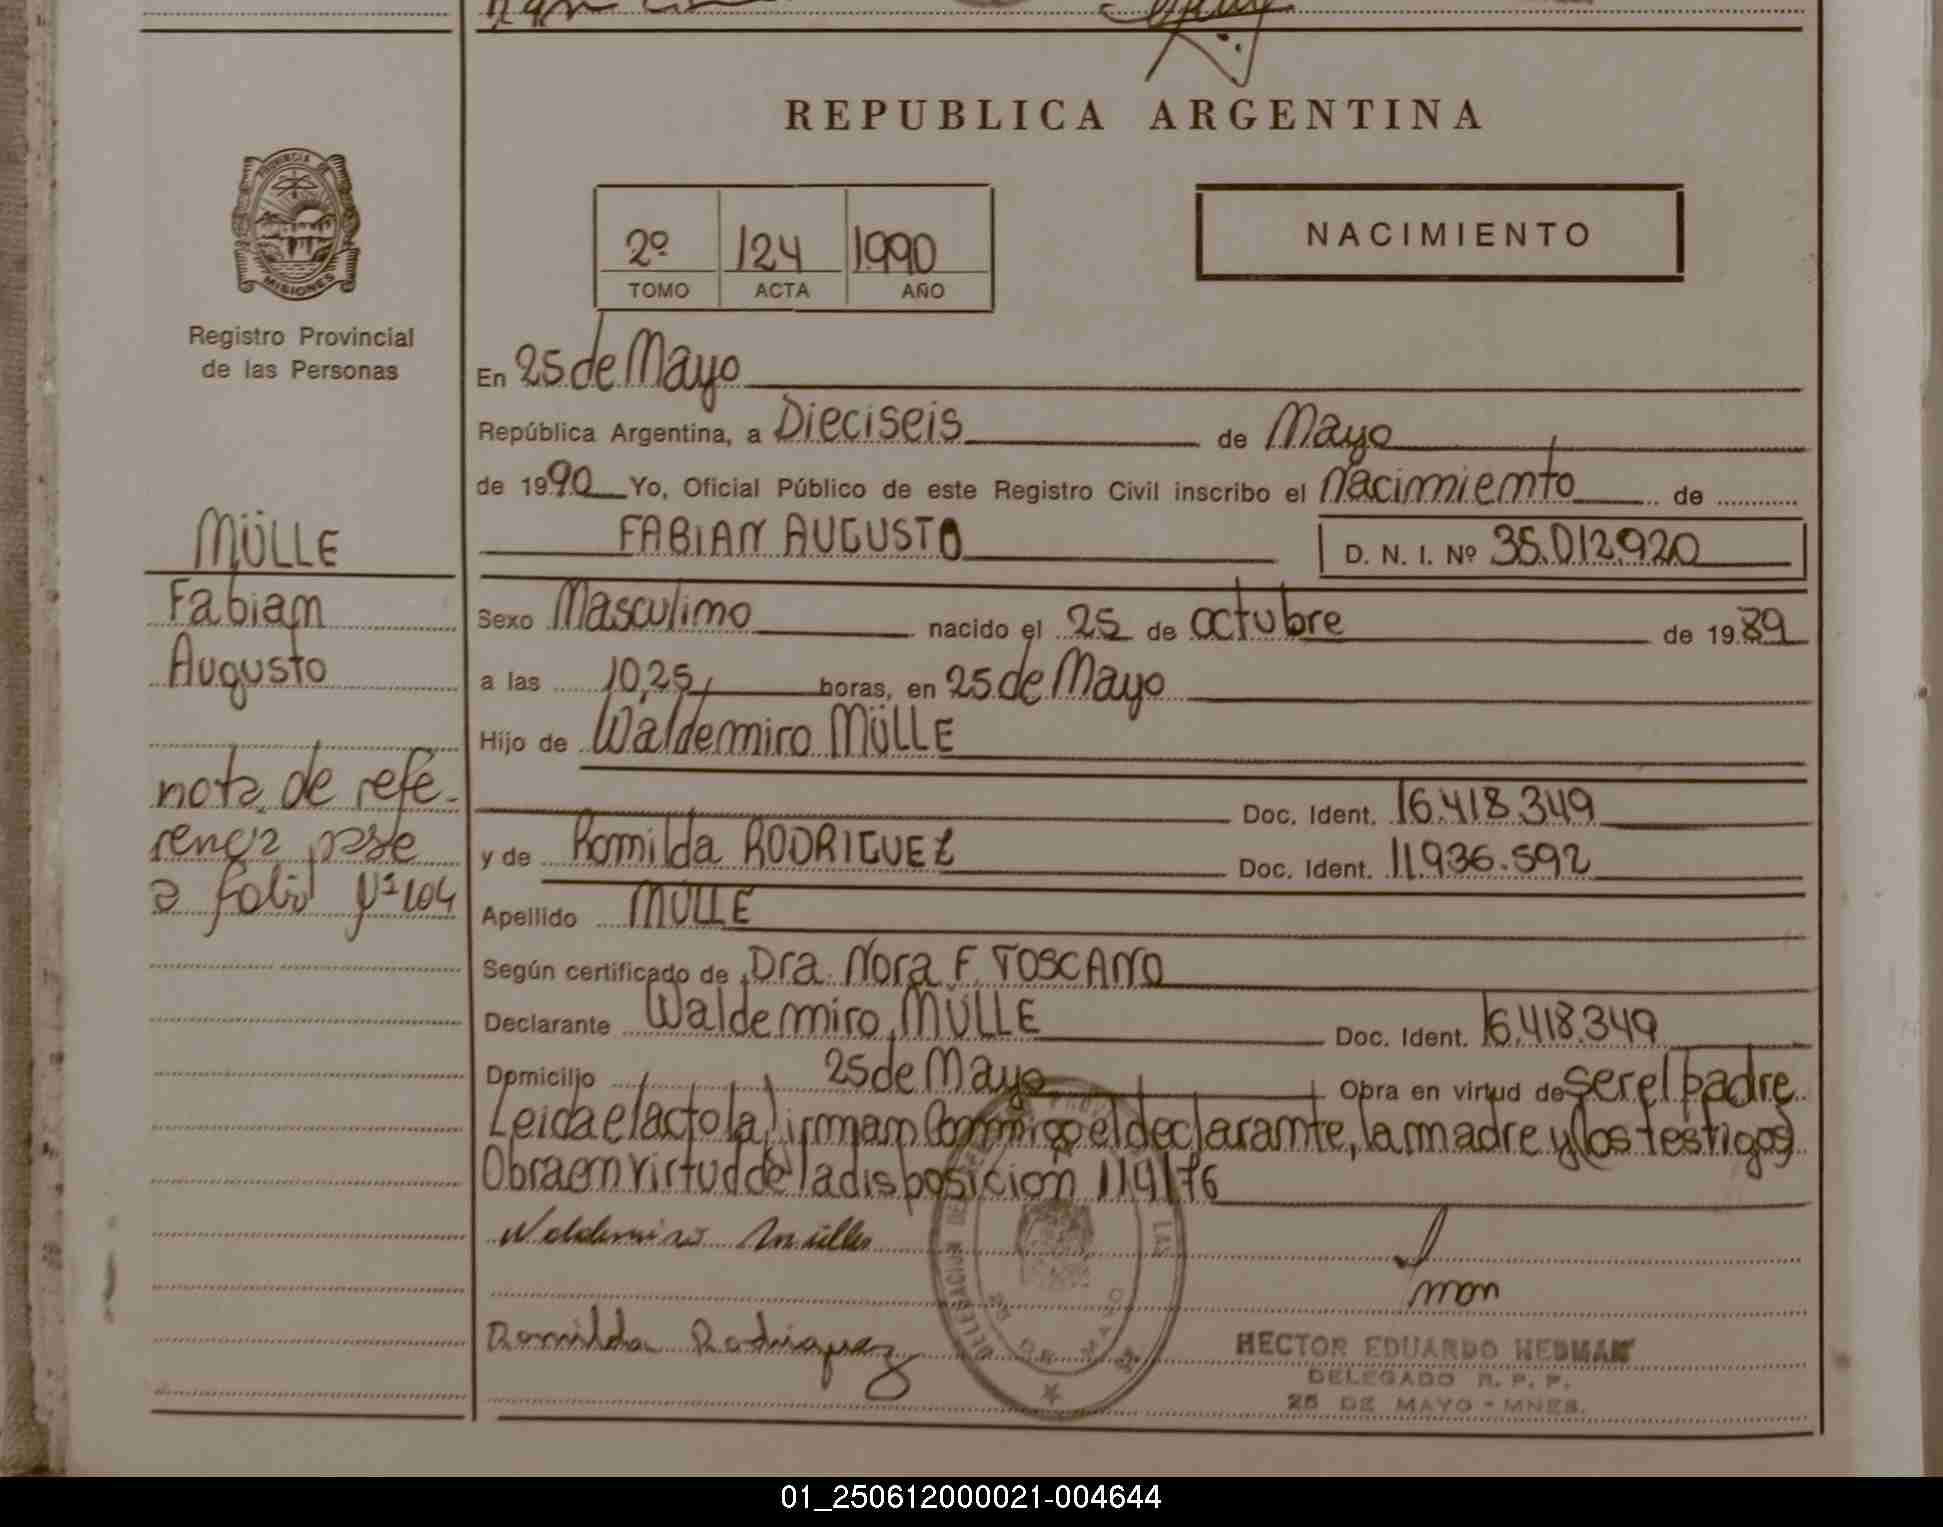 REPUBLICA ARGENTINA
PROVINCIA DE
MISIONES
Registro Provincial
de las Personas
2º 124 1990
TOMO ACTA AÑO
NACIMIENTO
En 25 de Mayo
República Argentina, a Dieciseis de Mayo
de 1990 Yo, Oficial Público de este Registro Civil inscribo el nacimiento de
FABIAN AUGUSTO D. N. I. Nº 35.012.920
Sexo Masculino nacido el 25 de octubre de 1989
a las 10,25 horas, en 25 de Mayo
Hijo de Waldemiro MÜLLE
Doc. Ident. 16.418.349
y de Romilda RODRIGUEZ Doc. Ident. 11.936.592
Apellido MÜLLE
Según certificado de Dra. Nora F. TOSCANO
Declarante Waldemiro MÜLLE Doc. Ident. 16.418.349
Domicilio 25 de Mayo Obra en virtud de ser el padre
Leida el acto la firman Conmigo el declarante, la madre y los testigos
Obra en virtud de la disposicion 119/76
Waldemiro Mülle
Romilda Rodriguez
HECTOR EDUARDO HEDMAN
DELEGADO R. P. P.
25 DE MAYO - MNES.
MÜLLE
Fabian
Augusto
nota de refe-
rencia pase
a folio Nº 104
01_250612000021-004644